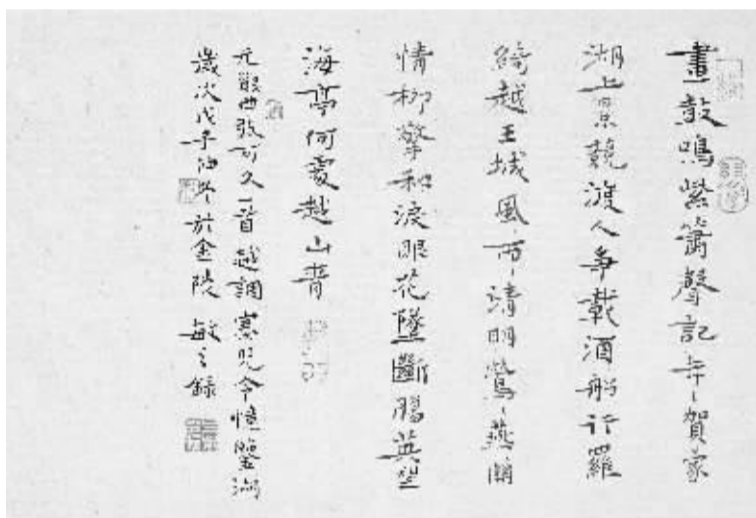 畫鼓鳴紫簫聲記年〻賀家
湖上景競渡人爭載酒船行羅
綺越王城風〻雨〻清明鶯〻燕〻關
情柳擎和淚眼花墜斷腸英望
海亭何處越山青
元散曲張可久一首越調寨兒令憶鑒湖
歲次戊子於金陵敏之錄